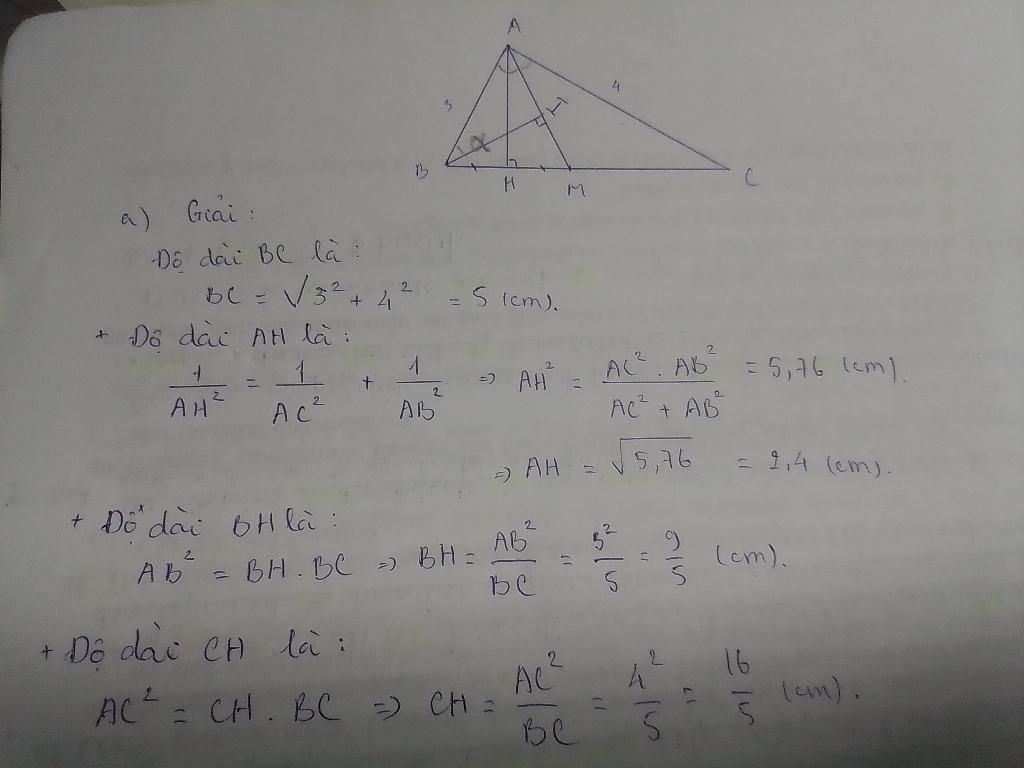 A
3
4
I
α
B
H
M
C
a) Giải:
Độ dài BC là:
BC = √3² + 4² = 5 (cm).
+ Độ dài AH là:
1/AH² = 1/AC² + 1/AB² => AH² = AC² . AB² / AC² + AB² = 5,76 (cm).
=> AH = √5,76 = 2,4 (cm).
+ Độ dài BH là:
AB² = BH . BC => BH = AB²/BC = 3²/5 = 9/5 (cm).
+ Độ dài CH là:
AC² = CH . BC => CH = AC²/BC = 4²/5 = 16/5 (cm).